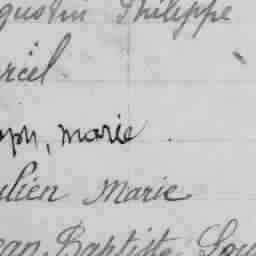 gustin Philippe
rcel
oph, marie
ulien Marie
ean Baptiste Lou